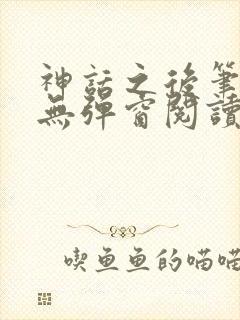 神話之後筆
無彈窗閱讀
喫魚魚的喵喵